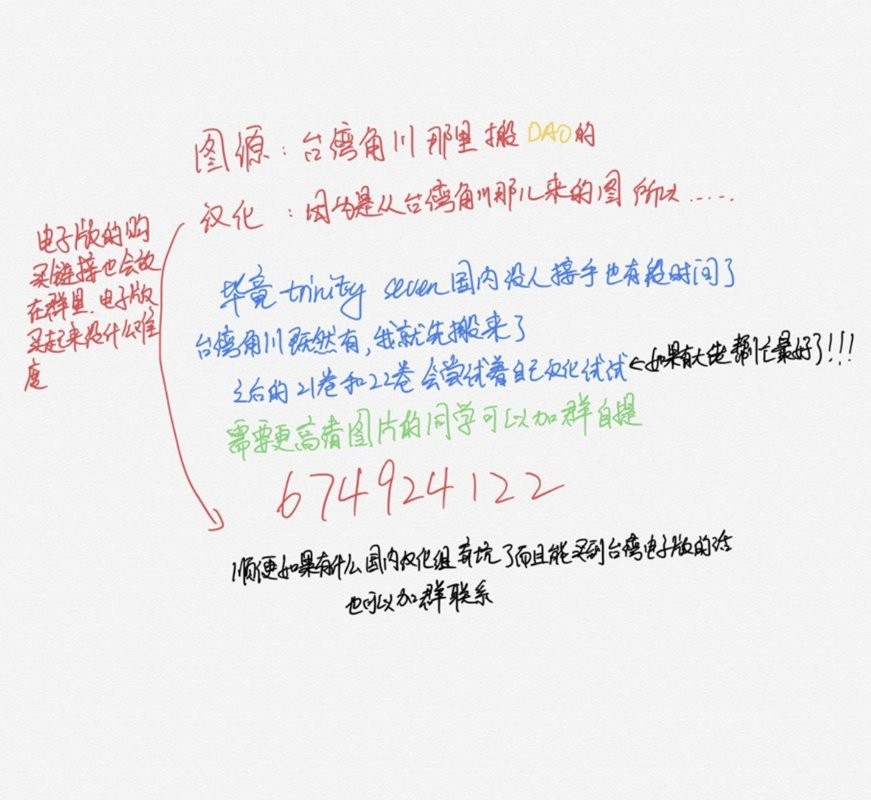 图源：台湾角川那里搬DAO的
汉化：因为是从台湾角川那儿来的图 所以……
电子版的购
买链接也会放
在群里.电子版
买起来没什么难
度
毕竟trinity seven国内没人接手也有段时间了
台湾角川既然有,我就先搬来了
之后的21卷和22卷会尝试着自己汉化试试←如果有大佬帮忙最好了!!!
需要更高清图片的同学可以加群自提
674924122
顺便如果有什么国内汉化组弃坑了而且能买到台湾电子版的话
也可以加群联系